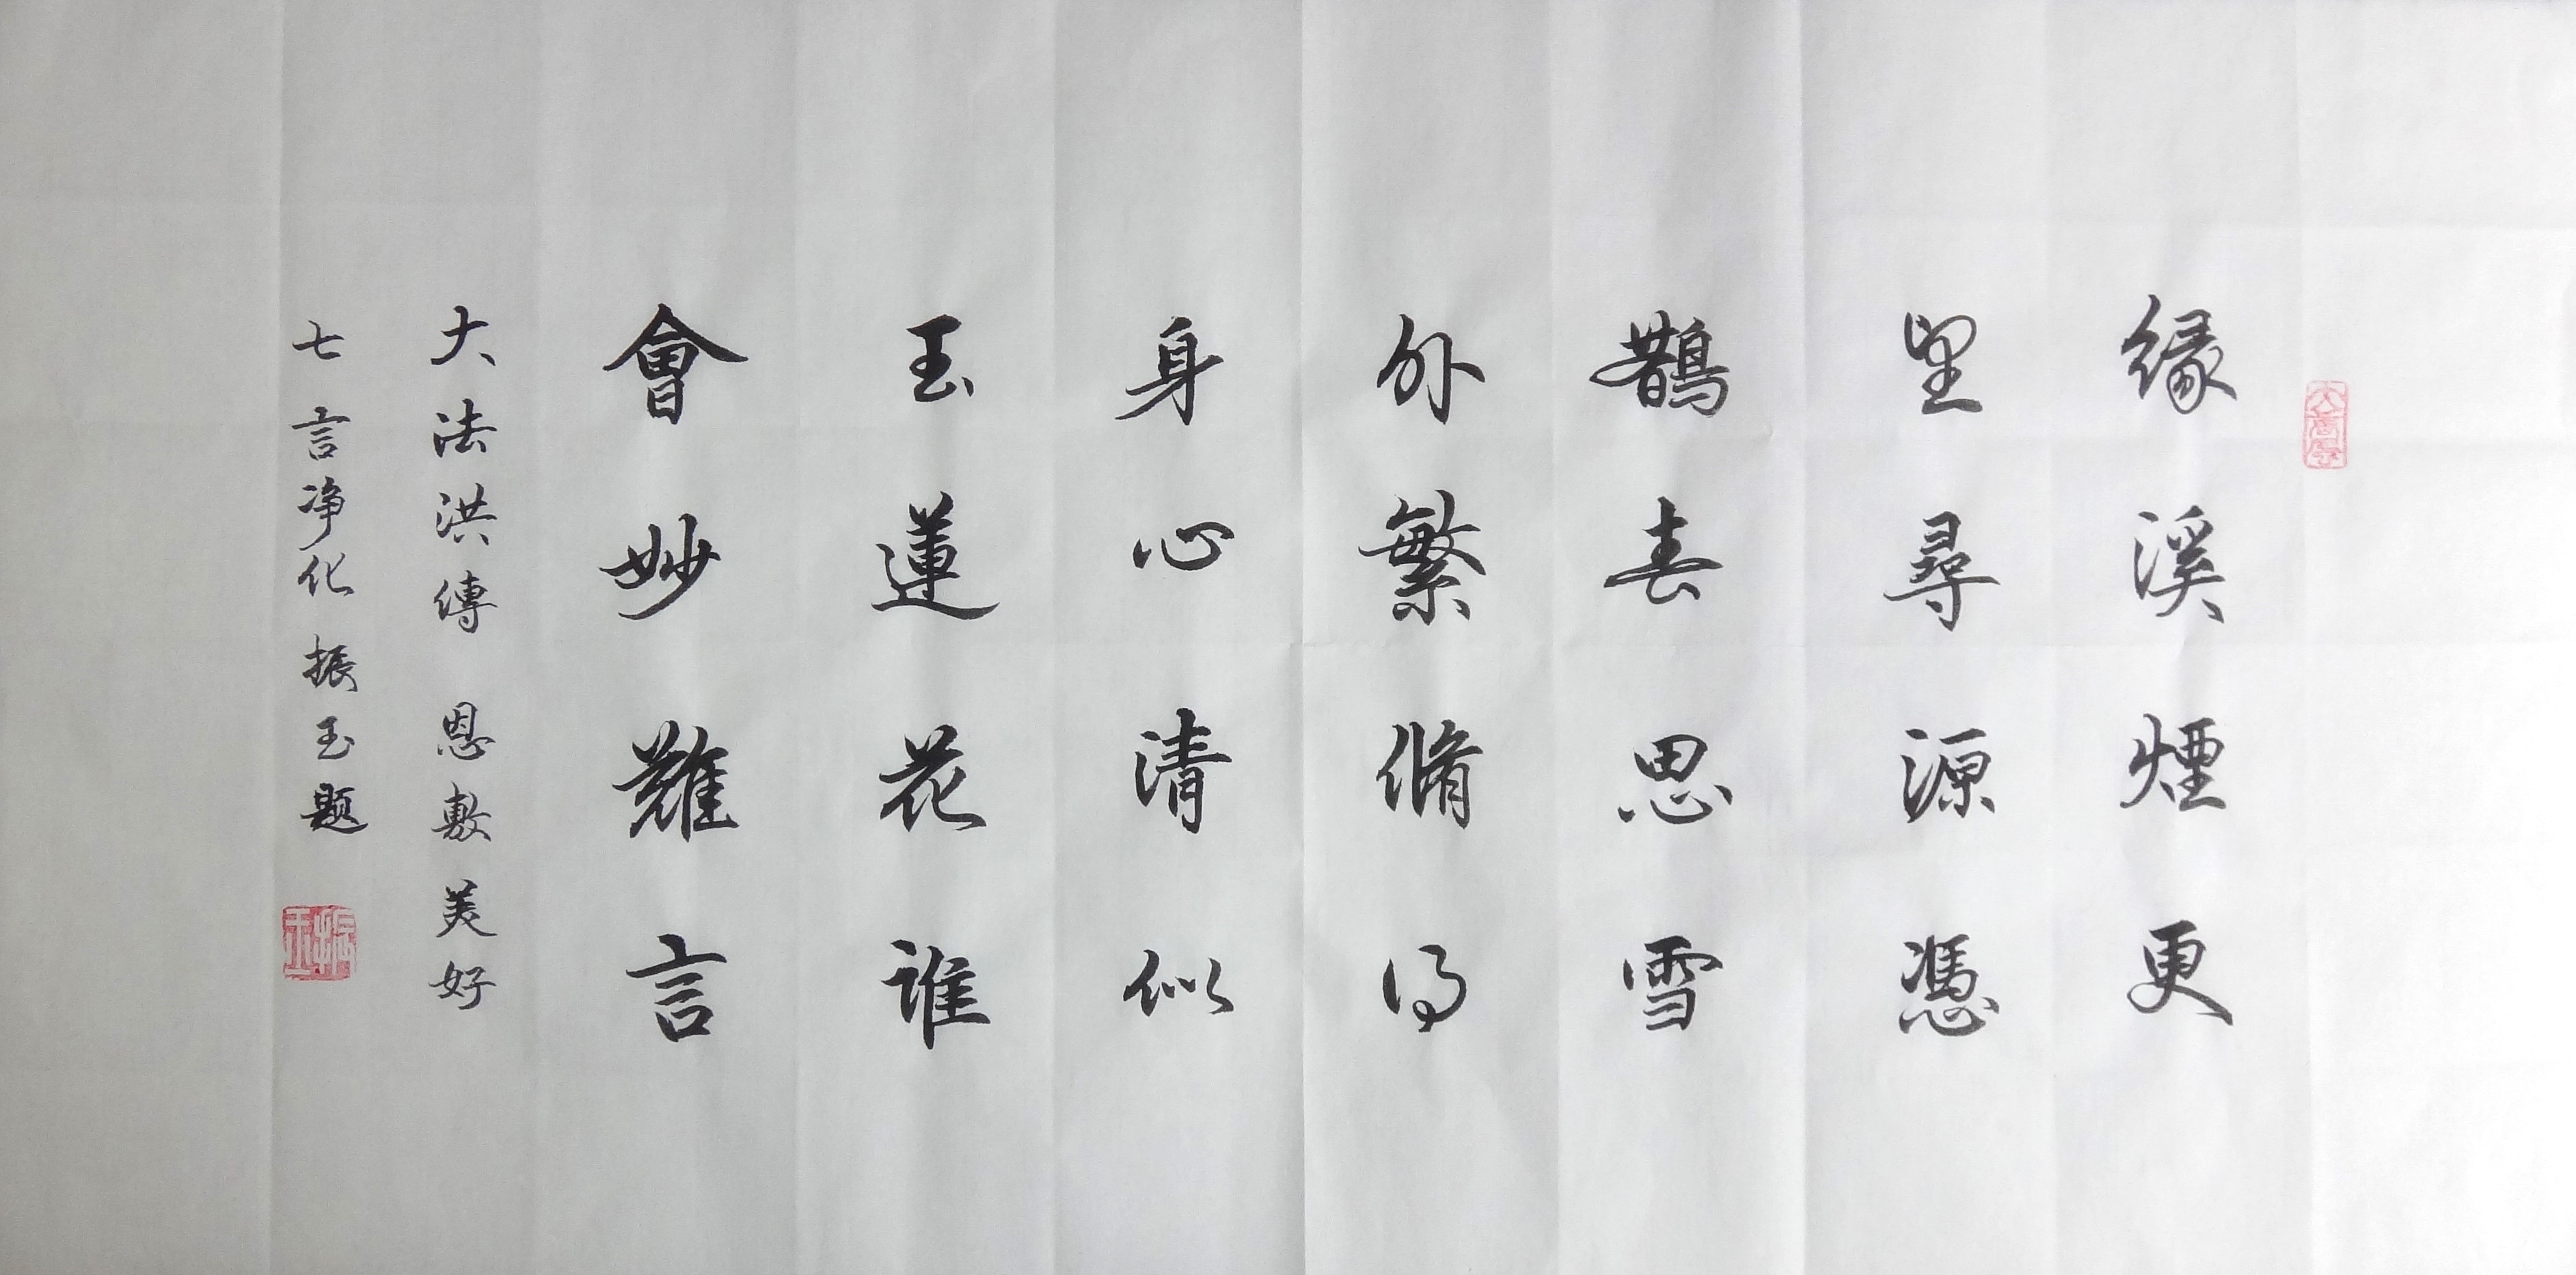 緣溪煙更
里尋源憑
鵲春思雪
外繁脩得
身心清似
玉蓮花誰
會妙難言
大法洪傳 恩敷美好
七言净化 振玉题
振玉